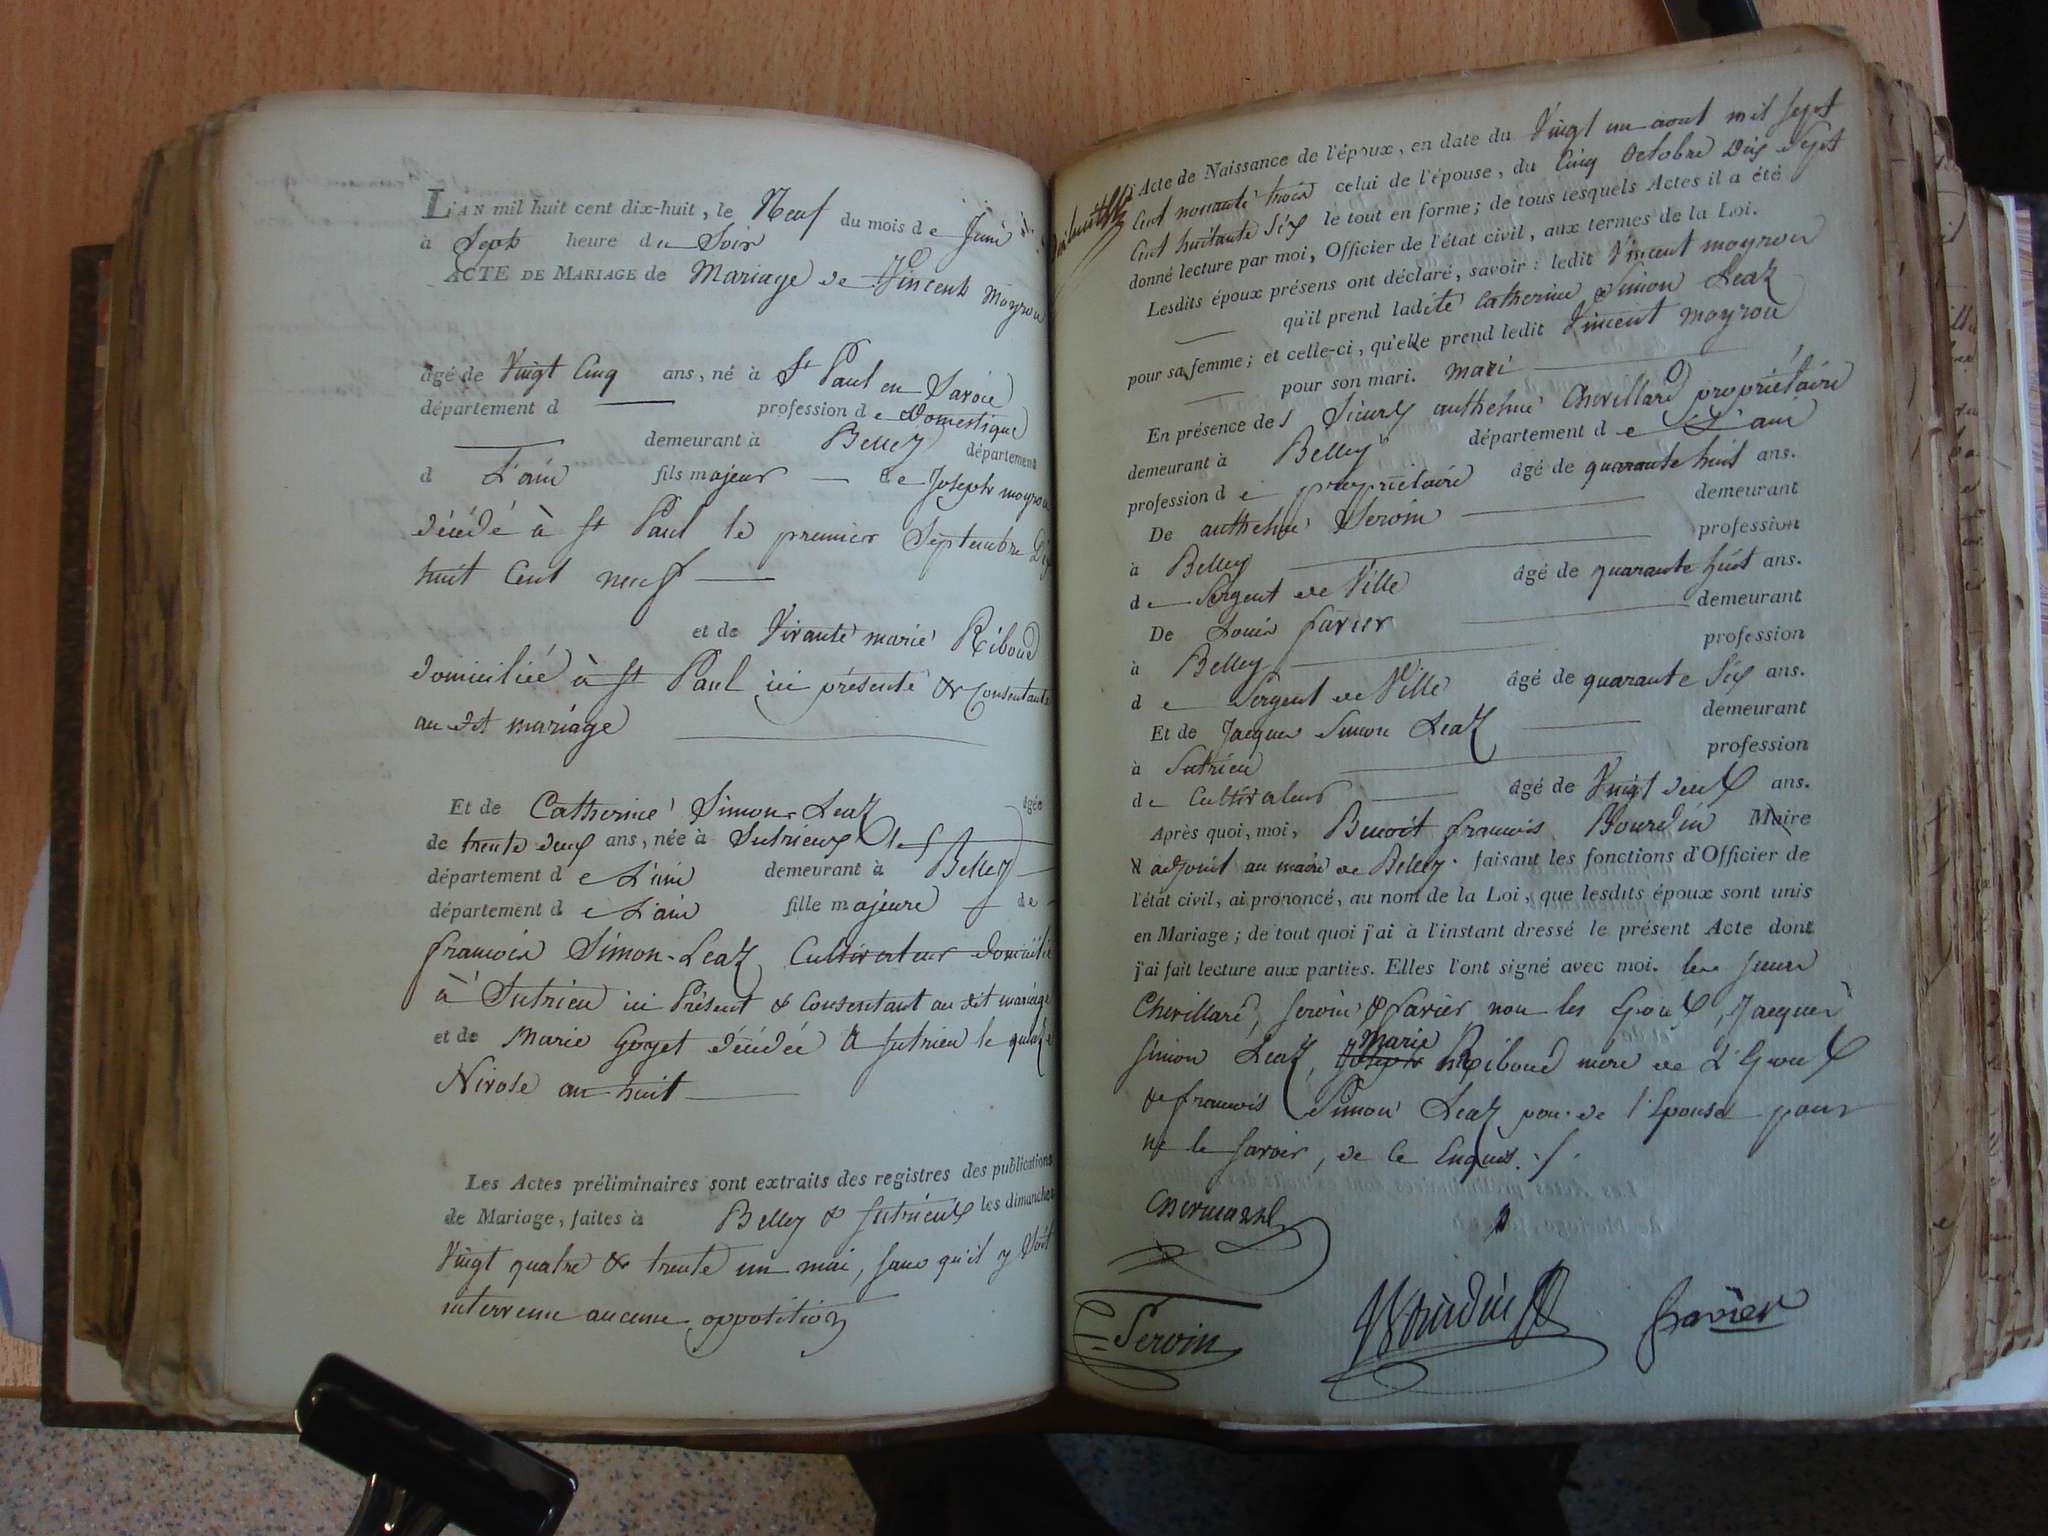 L'AN mil huit cent dix-huit, le Neuf du mois de Juin
à Sept heure du Soir
ACTE DE MARIAGE de Mariage de Vincent Moyrou
âgé de Vingt Cinq ans, né à St Paul en Savoie
département d profession de Domestique
demeurant à Belley département
d L'ain fils majeur de Joseph moyrou
décédé à St Paul le premier Septembre Dix
huit Cent neuf
et de Vivante marie Riboud
domiciliée à St Paul ici présente & Consentante
au dit mariage
Et de Catherine Simon-Leaz âgée
de trente deux ans, née à Sutrieux
département de L'ain demeurant à Belley
département de L'ain fille majeure de
françois Simon-Leaz Cultivateur domicilié
à Sutrieu ici Présent & Consentant au dit mariage
et de Marie Goyet décédée A Sutrieu le
Nivose an huit
Les Actes préliminaires sont extraits des registres des publications
de Mariage, faites à Belley & Sutrieux les dimanches
Vingt quatre & trente un mai, sans qu'il y Soit
intervenu aucune opposition
l'Acte de Naissance de l'époux, en date du Vingt un aout mil sept
Cent nonante trois celui de l'épouse, du Cinq Octobre Dix Sept
Cent huitante Six le tout en forme; de tous lesquels Actes il a été
donné lecture par moi, Officier de l'état civil, aux termes de la Loi.
Lesdits époux présens ont déclaré, savoir : ledit Vincent moyrou
qu'il prend ladite Catherine Simon Leaz
pour sa femme; et celle-ci, qu'elle prend ledit Vincent moyrou
pour son mari. mari
En présence des Sieurs anthelme Chevillard propriétaire
demeurant à Belley département de L'ain
profession de propriétaire âgé de quarante huit ans.
De anthelme Servin demeurant
à Belley profession
de Sergent de Ville âgé de quarante huit ans.
De Louis favier demeurant
à Belley profession
de Sergent de Ville âgé de quarante Six ans.
Et de Jacques Simon Leaz demeurant
à Sutrieu profession
de Cultivateur âgé de Vingt deux ans.
Après quoi, moi, Benoit françois Bourdin Maire
adjoint au maire de Belley faisant les fonctions d'Officier de
l'état civil, ai prononcé, au nom de la Loi, que lesdits époux sont unis
en Mariage; de tout quoi j'ai à l'instant dressé le présent Acte dont
j'ai fait lecture aux parties. Elles l'ont signé avec moi. les Sieurs
Chevillard, Servin & Favier non les Epoux, Jacques
Simon Leaz, Marie Riboud mere de L'Epoux
& françois Simon Leaz pere de l'Epouse pour
ne le Savoir, de ce Enquis.
Servin
Bourdin
favier